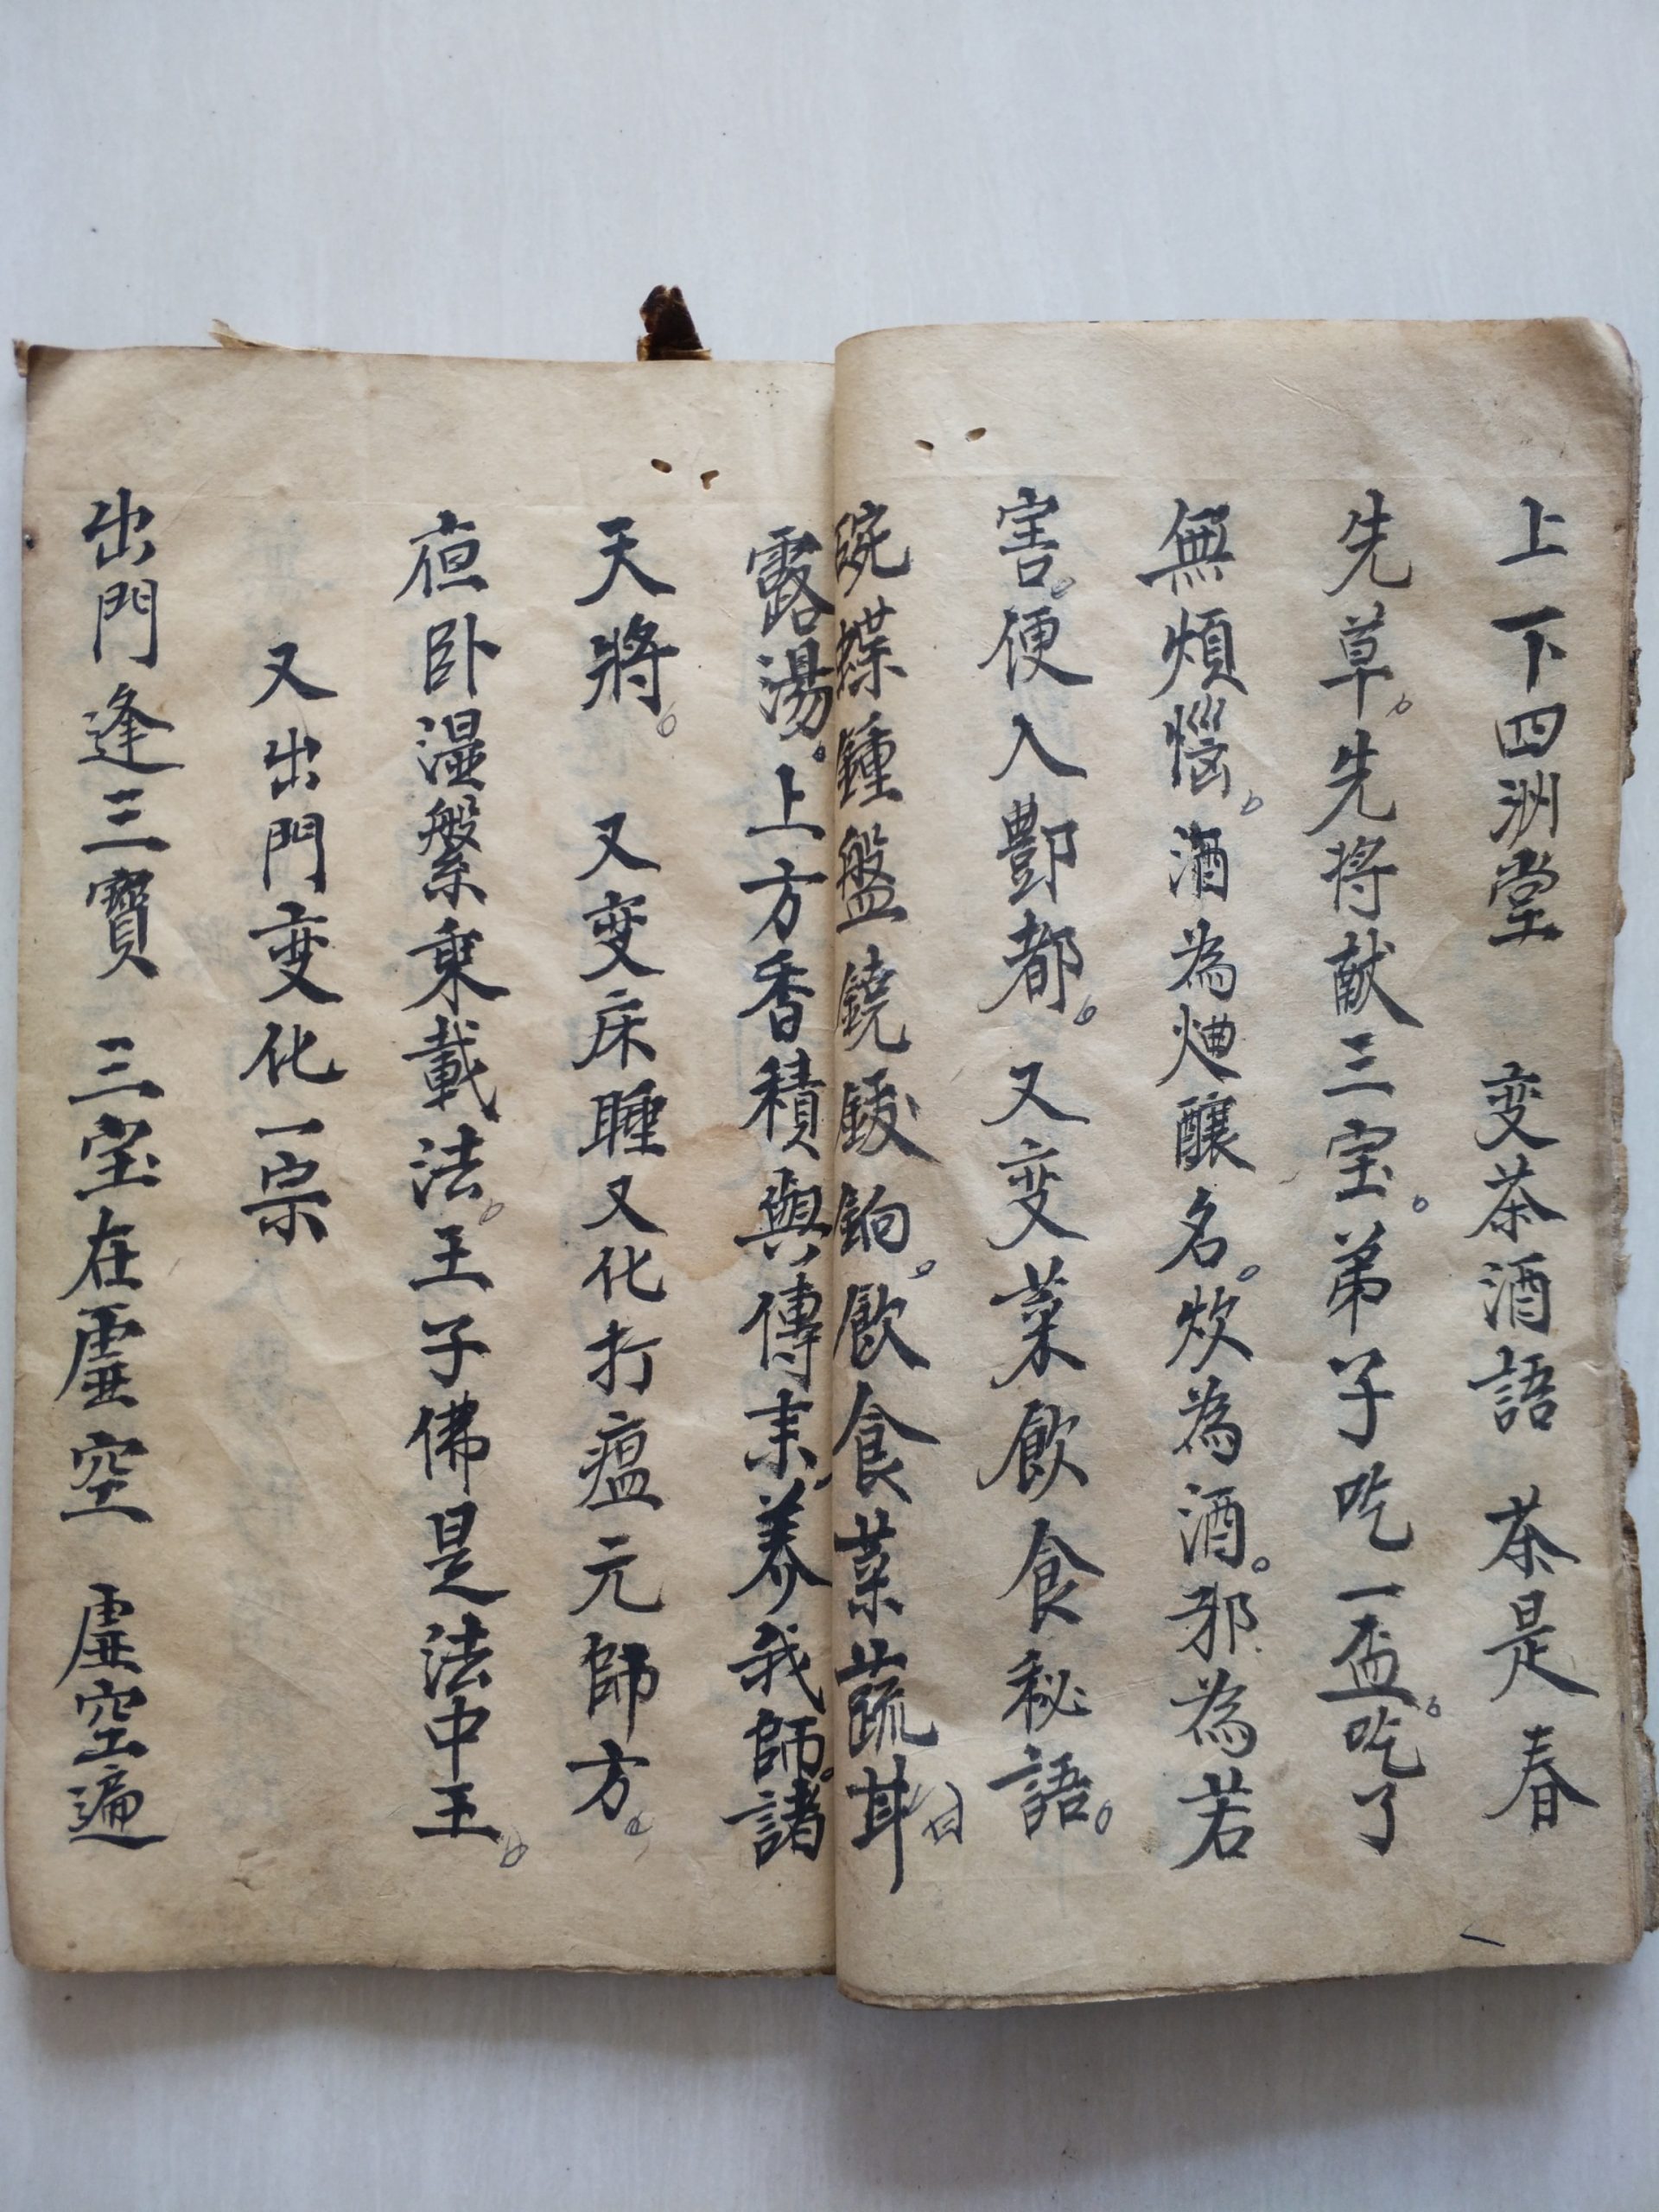 上下四洲堂 变茶酒語 茶是春
先草。先将献三宝。弟子吃一盃。吃了
無煩惱。酒為醸名。炊為酒。邪為若
害。便入酆都。又变菜飲食秘語。
碗蝶鍾盤鐃鈸飲食菜蔬
露湯。上方香積與傳来養我師。諸
天將。 又变床睡又化打瘟元師方。
夜卧湿槃乗載法。王子佛是法中王。
又出門变化一宗
出門逢三寶 三宝在虚空 虚空遍